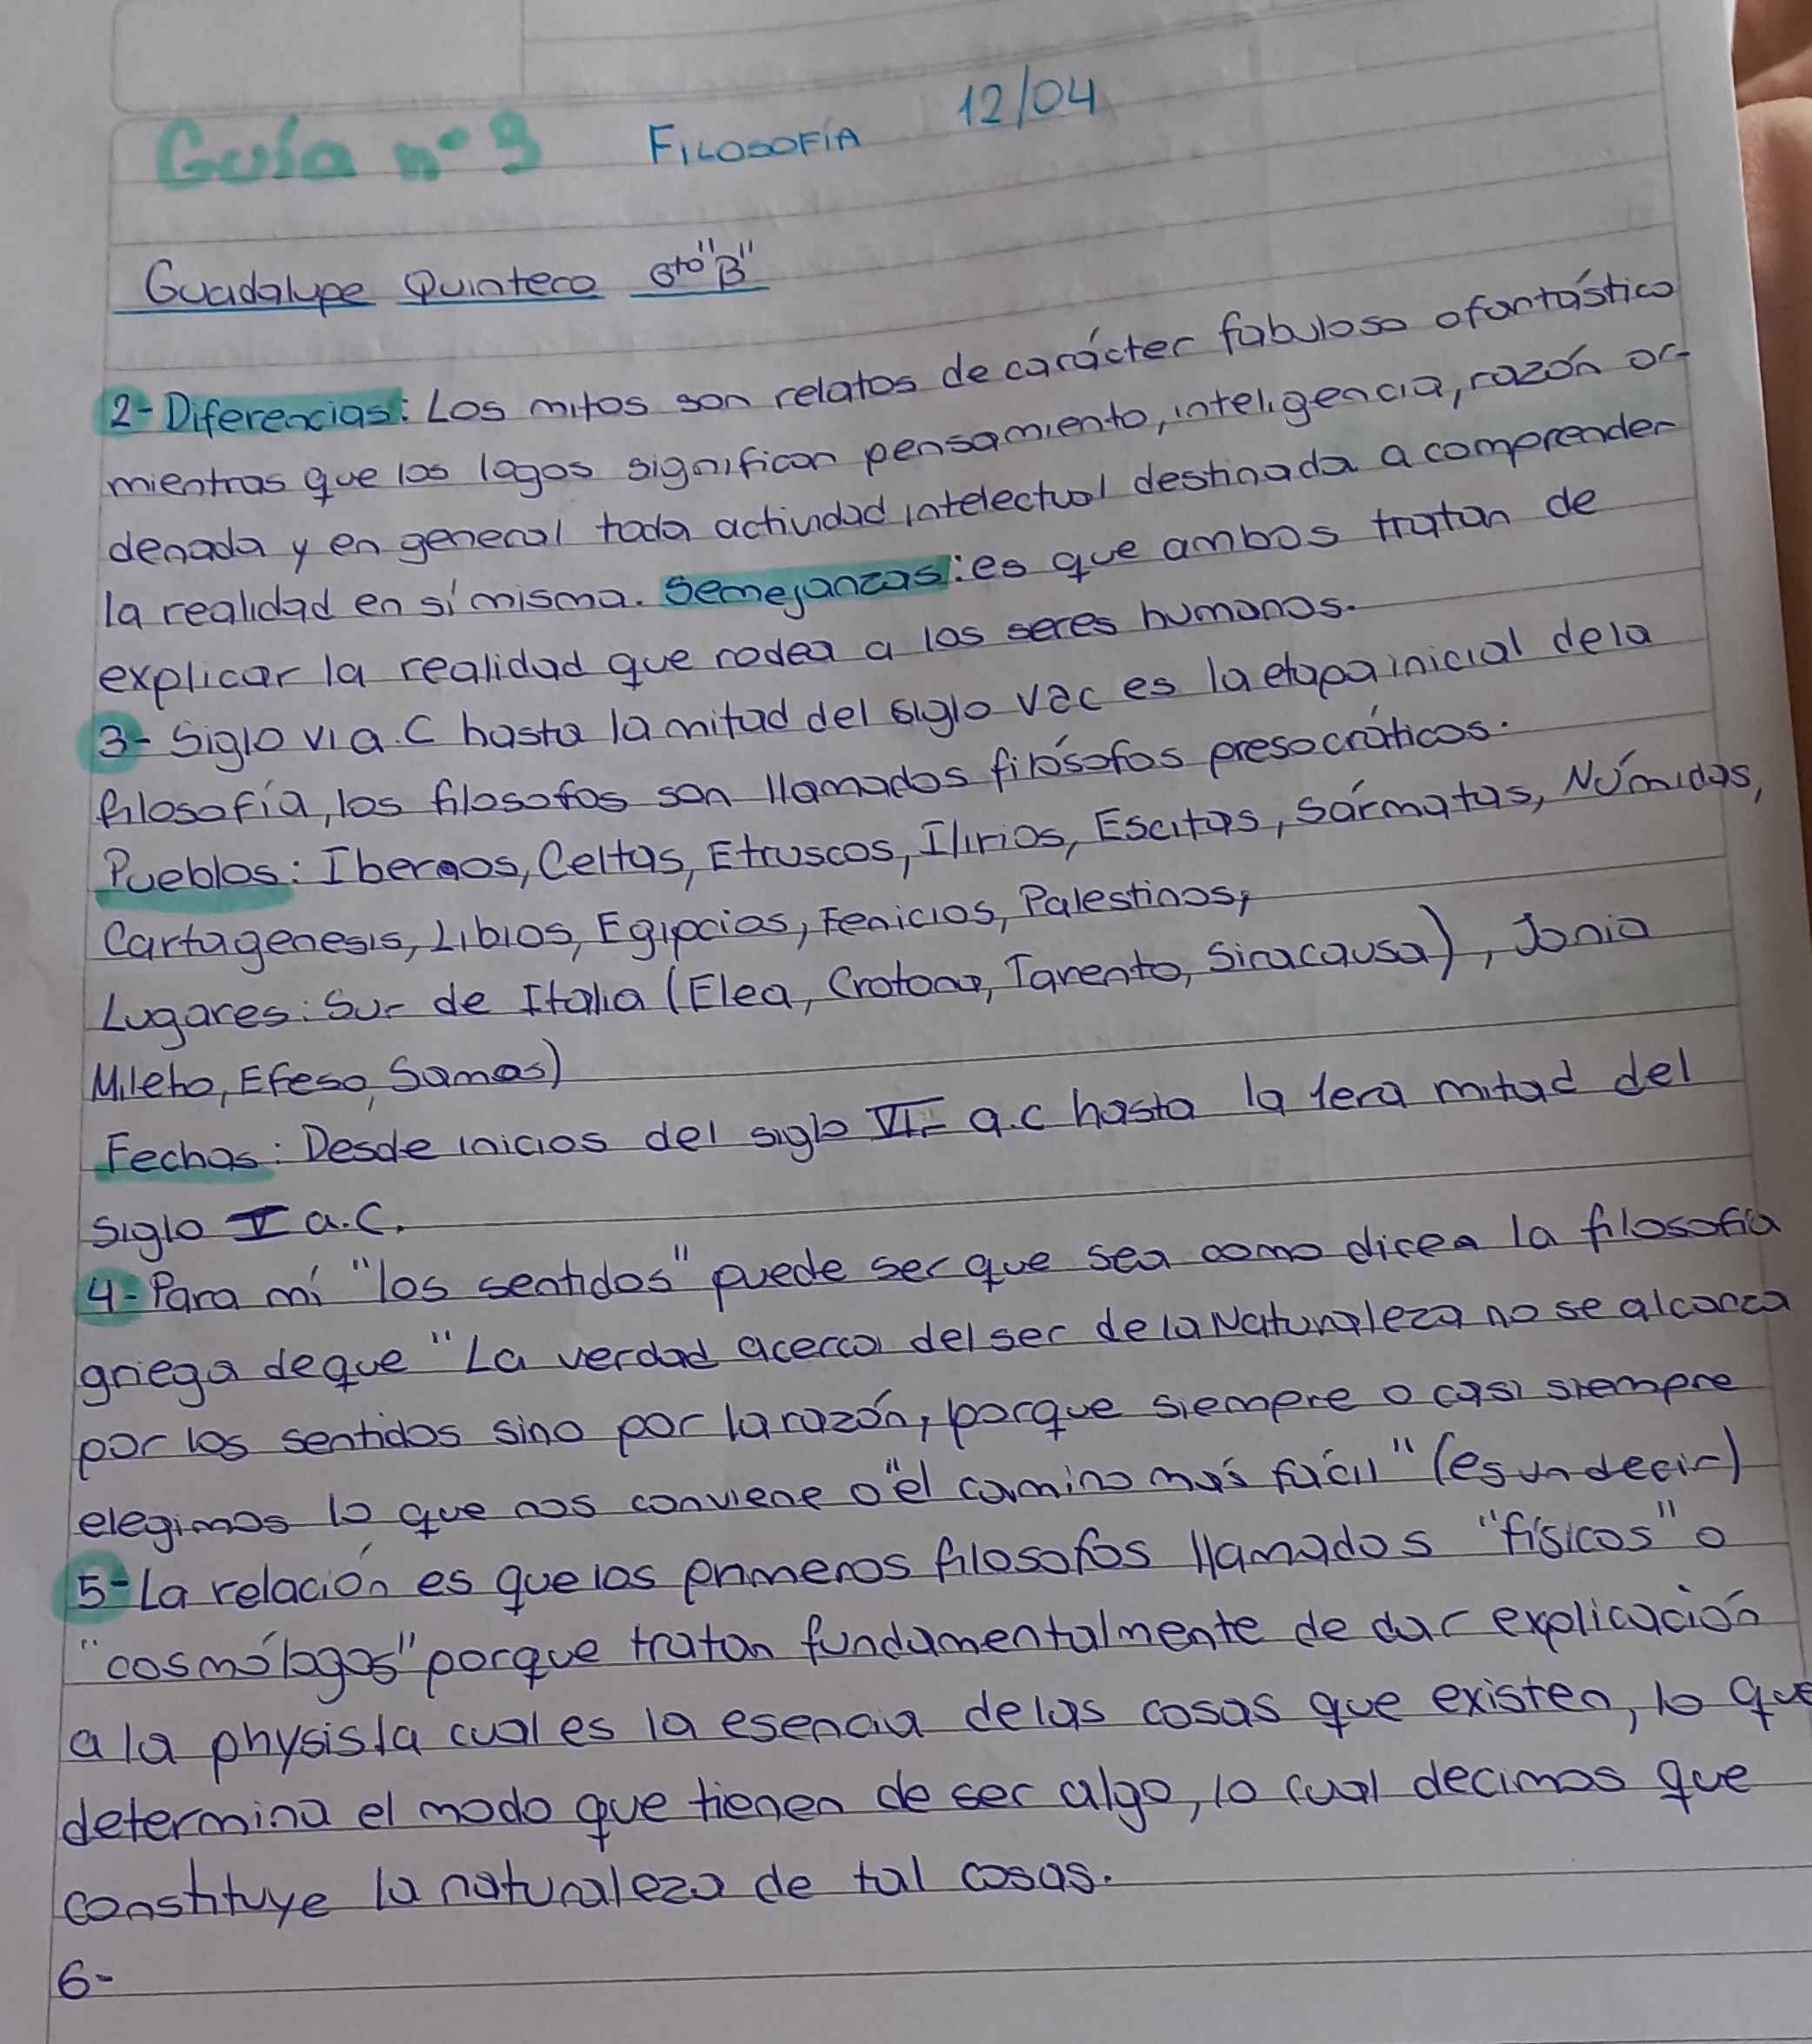 Guía nº 3 FILOSOFÍA 12/04
Guadalupe Quintero 6to "B"
2- Diferencias: Los mitos son relatos de carácter fabuloso o fantástico
mientras que los logos significan pensamiento, inteligencia, razón or-
denada y en general toda actividad intelectual destinada a comprender
la realidad en sí misma. Semejanzas: es que ambos tratan de
explicar la realidad que rodea a los seres humanos.
3- Siglo VI a.C hasta la mitad del siglo V a c es la etapa inicial de la
filosofía, los filosofos son llamados filósofos presocráticos.
Pueblos: Iberos, Celtas, Etruscos, Ilirios, Escitas, Sármatas, Númidas,
Cartagenesis, Libios, Egipcios, Fenicios, Palestinos,
Lugares: Sur de Italia (Elea, Crotona, Tarento, Siracausa), Jonia
Mileto, Efeso, Samos)
Fechas: Desde inicios del siglo VI a.c hasta la 1era mitad del
siglo V a.C.
4- Para mí "los sentidos" puede ser que sea como dicen la filosofía
griega de que "La verdad acerca del ser de la Naturaleza no se alcanza
por los sentidos sino por la razón, porque siempre o casi siempre
elegimos lo que nos conviene o "el camino más fácil" (es un decir)
5- La relación es que los primeros filosofos llamados "físicos" o
"cosmólogos" porque tratan fundamentalmente de dar explicación
a la physis la cual es la esencia de las cosas que existen, lo que
determina el modo que tienen de ser algo, lo cual decimos que
constituye la naturaleza de tal cosas.
6-